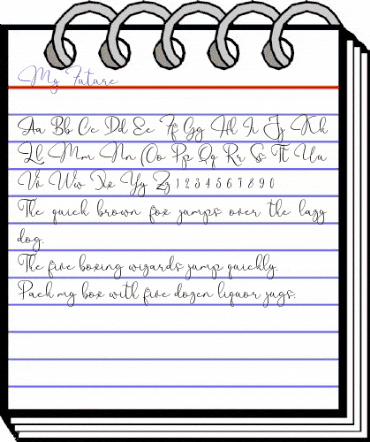 My Future
Aa Bb Cc Dd Ee Ff Gg Hh Ii Jj Kk
Ll Mm Nn Oo Pp Qq Rr Ss Tt Uu
Vv Ww Xx Yy Zz 1 2 3 4 5 6 7 8 9 0
The quick brown fox jumps over the lazy
dog.
The five boxing wizards jump quickly.
Pack my box with five dozen liquor jugs.